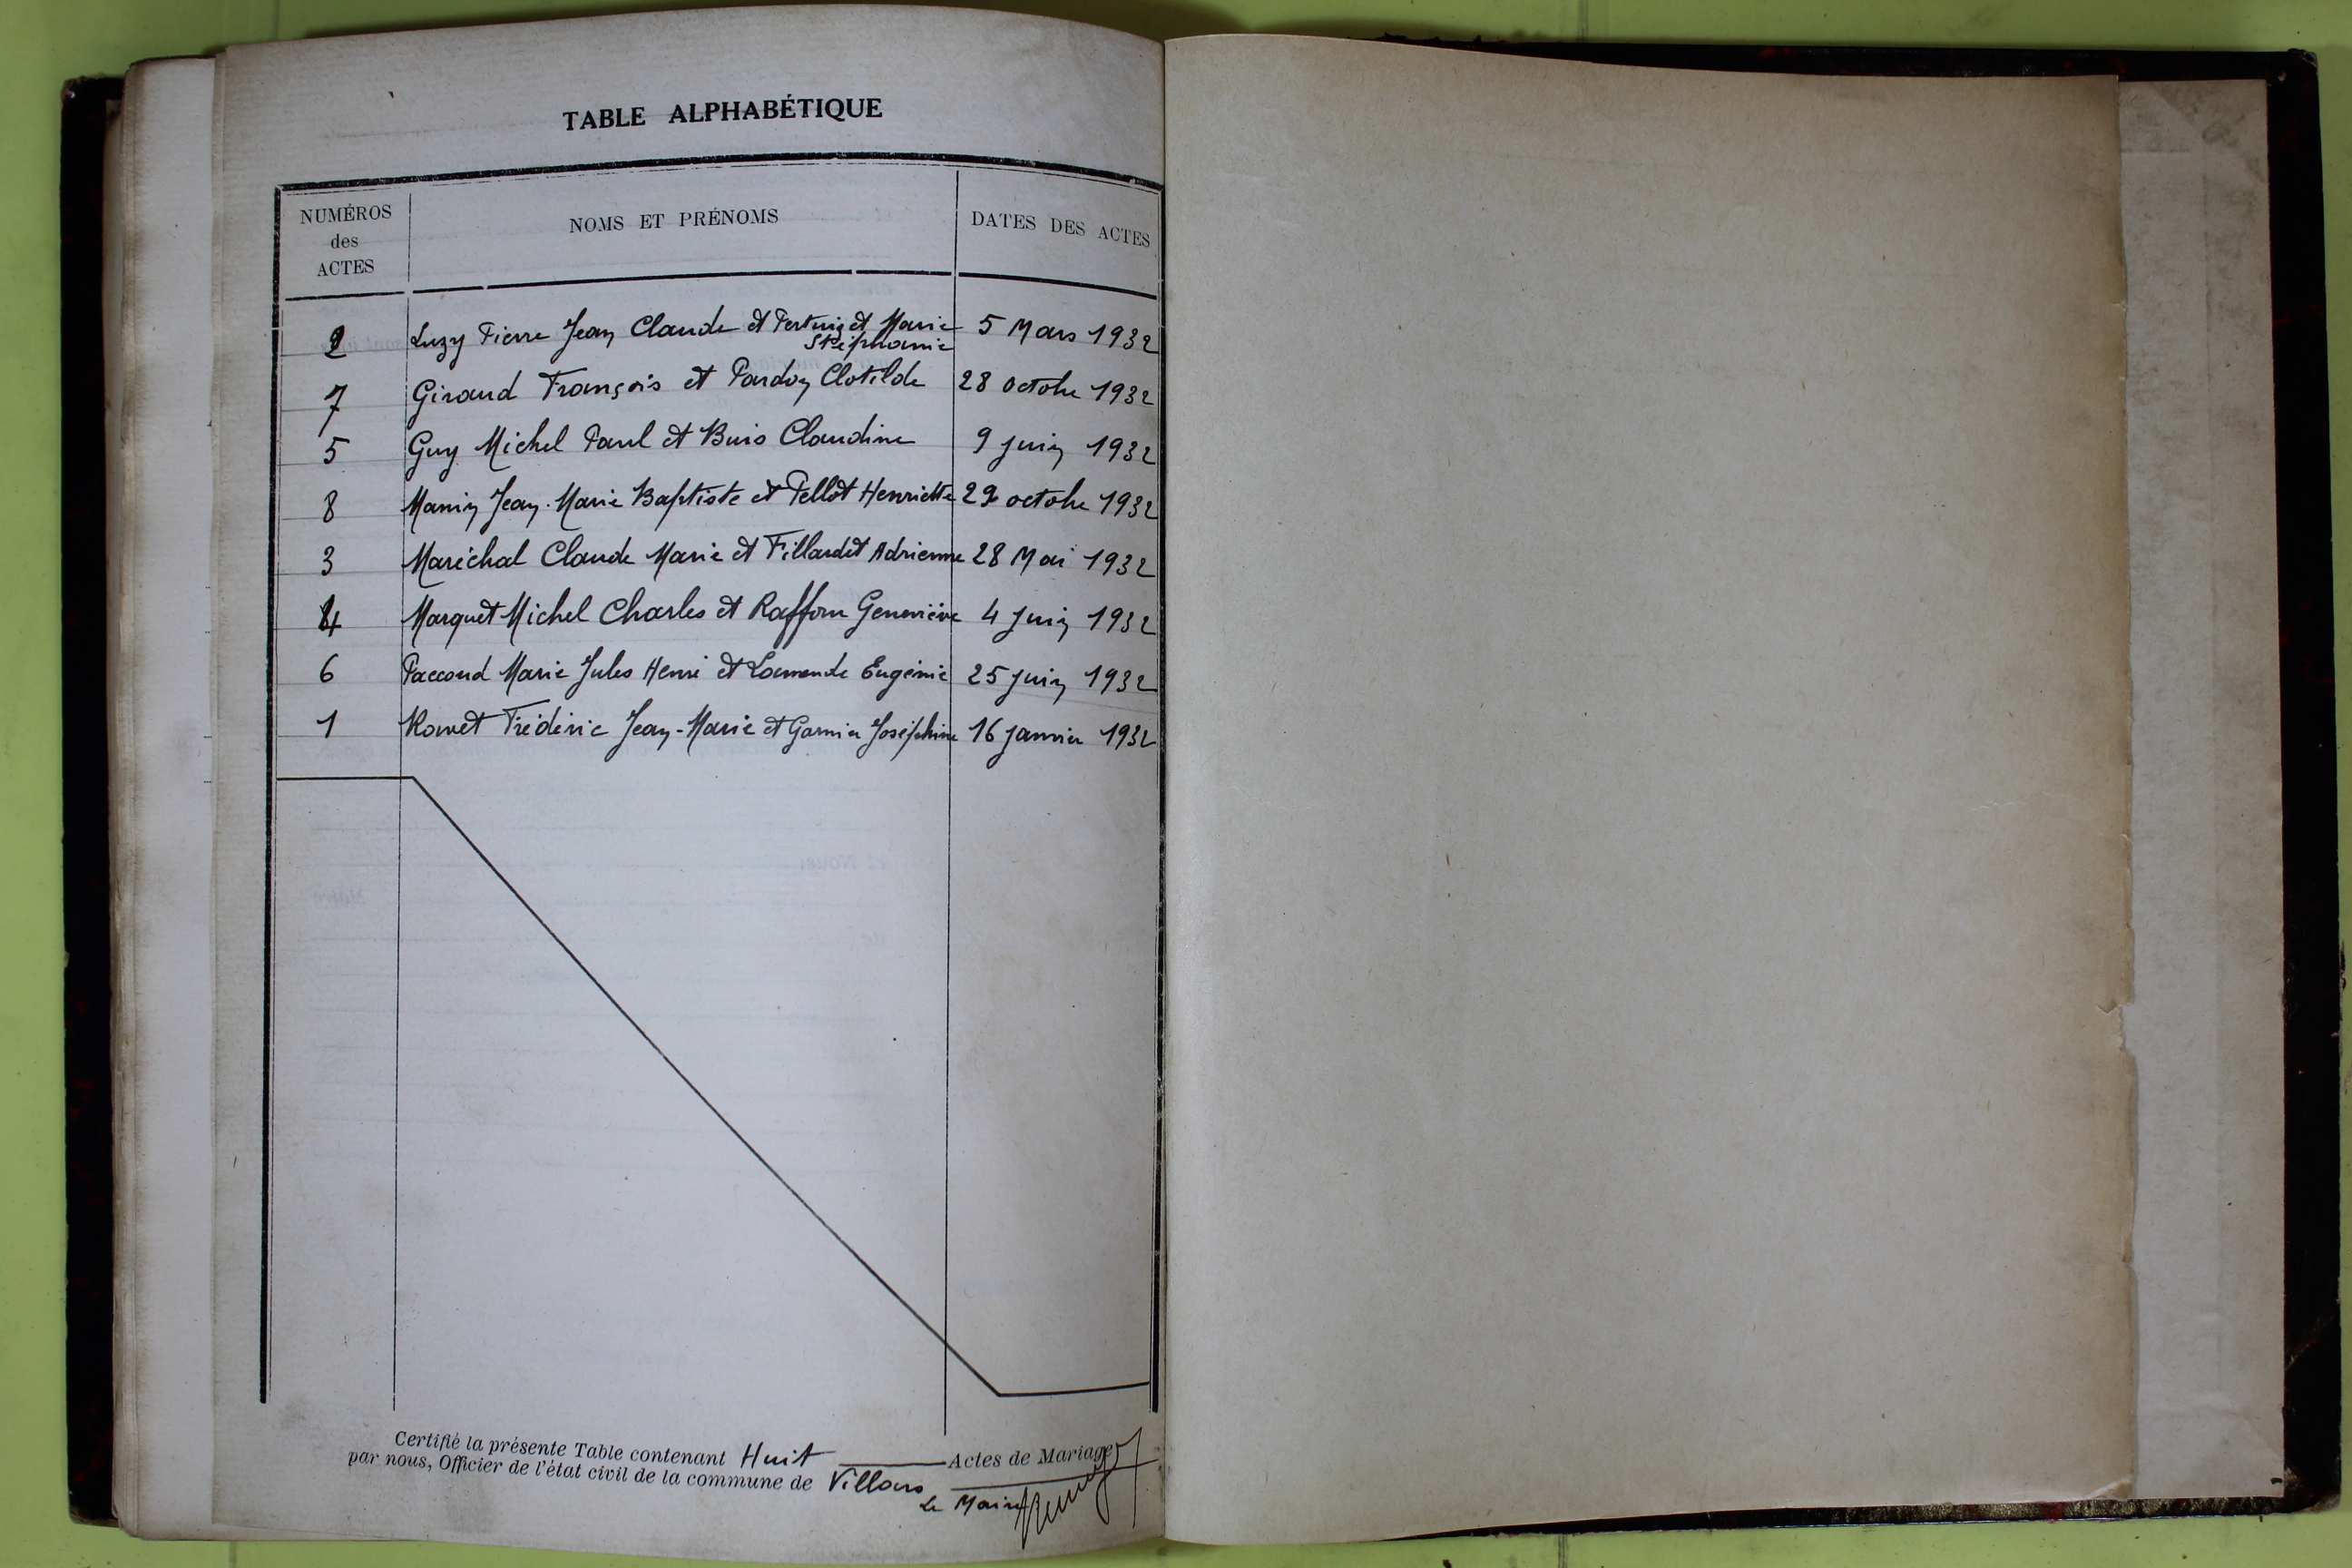 TABLE ALPHABÉTIQUE
NUMÉROS
des
ACTES
NOMS ET PRÉNOMS
DATES DES ACTES
2 Luzy Pierre Jean Claude et Pertuizet Marie 5 Mars 1932
Stéphanie
7 Giraud François et Pardon Clotilde 28 octobre 1932
5 Guy Michel Paul et Buis Claudine 9 juin 1932
8 Manin Jean-Marie Baptiste et Pellot Henriette 29 octobre 1932
3 Maréchal Claude Marie et Fillardet Adrienne 28 Mai 1932
4 Marquet Michel Charles et Geneviève 4 juin 1932
6 Paccoud Marie Jules Henri et Eugénie 25 juin 1932
1 Frédéric Jean-Marie et Garnier Joséphine 16 janvier 1932
Certifié la présente Table contenant Huit Actes de Mariage
par nous, Officier de l'état civil de la commune de Villars
Le Maire